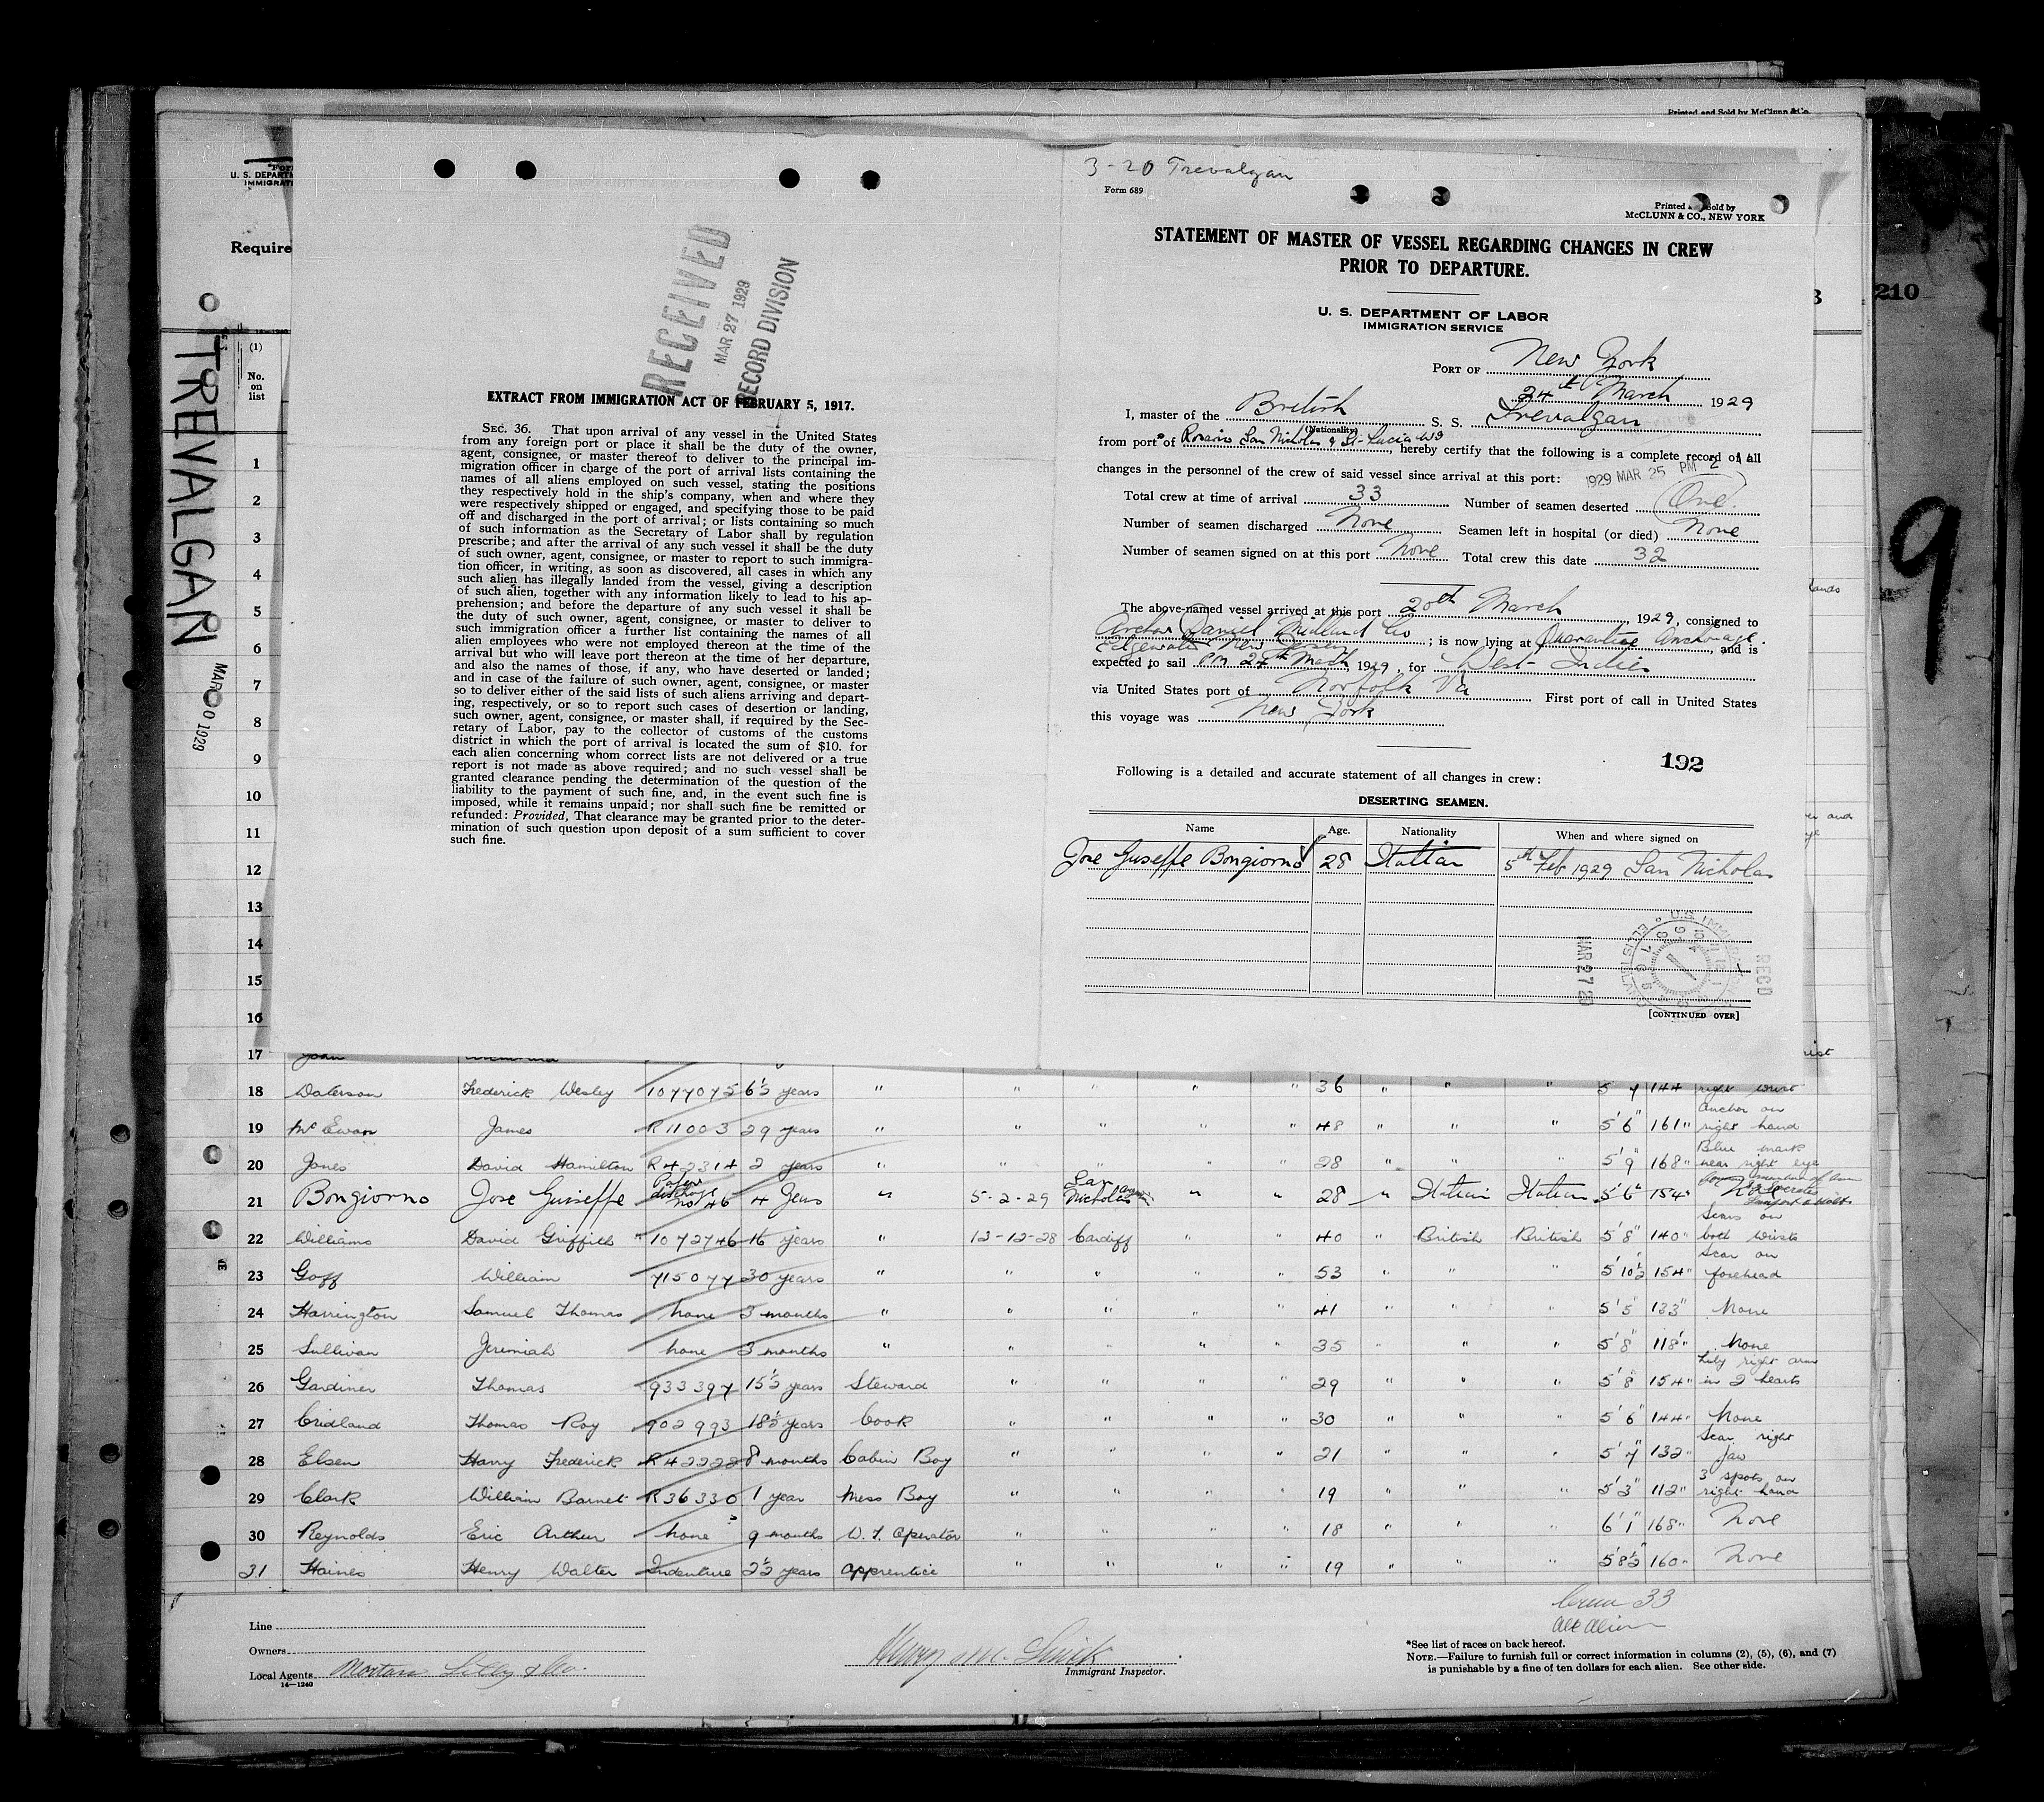 Printed and Sold by McClunn & Co.
U. S. DEPARTM
IMMIGRATI
Require
TREVALGAN
(1)
No.
on
list
210
9
RECEIVED
MAR 27 1929
RECORD DIVISION
EXTRACT FROM IMMIGRATION ACT OF FEBRUARY 5, 1917.
SEC. 36. That upon arrival of any vessel in the United States
from any foreign port or place it shall be the duty of the owner,
agent, consignee, or master thereof to deliver to the principal im-
migration officer in charge of the port of arrival lists containing the
names of all aliens employed on such vessel, stating the positions
they respectively hold in the ship's company, when and where they
were respectively shipped or engaged, and specifying those to be paid
off and discharged in the port of arrival; or lists containing so much
of such information as the Secretary of Labor shall by regulation
prescribe; and after the arrival of any such vessel it shall be the duty
of such owner, agent, consignee, or master to report to such immigra-
tion officer, in writing, as soon as discovered, all cases in which any
such alien has illegally landed from the vessel, giving a description
of such alien, together with any information likely to lead to his ap-
prehension; and before the departure of any such vessel it shall be
the duty of such owner, agent, consignee, or master to deliver to
such immigration officer a further list containing the names of all
alien employees who were not employed thereon at the time of the
arrival but who will leave port thereon at the time of her departure,
and also the names of those, if any, who have deserted or landed;
and in case of the failure of such owner, agent, consignee, or master
so to deliver either of the said lists of such aliens arriving and depart-
ing, respectively, or so to report such cases of desertion or landing,
such owner, agent, consignee, or master shall, if required by the Sec-
retary of Labor, pay to the collector of customs of the customs
district in which the port of arrival is located the sum of $10. for
each alien concerning whom correct lists are not delivered or a true
report is not made as above required; and no such vessel shall be
granted clearance pending the determination of the question of the
liability to the payment of such fine, and, in the event such fine is
imposed, while it remains unpaid; nor shall such fine be remitted or
refunded: Provided, That clearance may be granted prior to the deter-
mination of such question upon deposit of a sum sufficient to cover
such fine.
3-20 Trevalgan
Form 689
Printed and Sold by
McCLUNN & CO., NEW YORK
STATEMENT OF MASTER OF VESSEL REGARDING CHANGES IN CREW
PRIOR TO DEPARTURE.
U. S. DEPARTMENT OF LABOR
IMMIGRATION SERVICE
PORT OF New York
24th March 1929
I, master of the British S. S. Trevalgan
(Nationality)
from port of Rosario San Nicholas & St. Lucia WI, hereby certify that the following is a complete record of all
changes in the personnel of the crew of said vessel since arrival at this port:
1929 MAR 25 PM 2
Total crew at time of arrival 33 Number of seamen deserted One.
Number of seamen discharged None Seamen left in hospital (or died) None
Number of seamen signed on at this port None Total crew this date 32
The above-named vessel arrived at this port 20th March, 1929, consigned to
Archer Daniel Midland Co; is now lying at Quarantine Anchorage, and is
Edgewater New Jersey
expected to sail on 24th March, 1929, for West Indies
via United States port of Norfolk Va First port of call in United States
this voyage was New York
192
Following is a detailed and accurate statement of all changes in crew:
DESERTING SEAMEN.
Name Age. Nationality When and where signed on
Jose Guseffe Bongiorno 28 Italian 5th Feb 1929 San Nicholas
MAR 27 29
U.S. IMMIGRATION
REC'D
[CONTINUED OVER]
1
2
3
4
5
6
7
8
9
10
11
12
13
14
15
16
17
18 Daterson Frederick Wesley 1077075 6½ years " " " " " 36 " " " 5 7 144 right wrist
19 McEwan James R11003 29 years " " " " " 48 " " " 5'6" 161" anchor on right hand
20 Jones David Hamilton R42314 2 years " " " " " 28 " " " 5'9" 168" Blue mark near right eye
21 Bongiorno Jose Guseffe no 46 4 Years " 5-2-29 San Nicholas " " 28 " Italian Italian 5'6" 154"
22 Williams David Griffith 1072746 16 years " 12-12-28 Cardiff " " 40 " British British 5'8" 140" Scars on both wrists
23 Goff William 715077 30 years " " " " " 53 " " " 5'10½ 154" Scar on forehead
24 Harrington Samuel Thomas none 3 months " " " " " 41 " " " 5'5" 133" None
25 Sullivan Jeremiah none 3 months " " " " " 35 " " " 5'8" 118" None
26 Gardiner Thomas 933397 15½ years Steward " " " " 29 " " " 5'8" 154" Lady right arm in 2 hearts
27 Cridland Thomas Roy 902993 18½ years Cook " " " " 30 " " " 5'6" 144" None
28 Elsen Harry Frederick R42222 8 months Cabin Boy " " " " 21 " " " 5'7" 132" Scar right jaw
29 Clark William Barnet R36330 1 year Mess Boy " " " " 19 " " " 5'3" 112" 3 spots on right hand
30 Reynolds Eric Arthur none 9 months W. T. Operator " " " " 18 " " " 6'1" 168" None
31 Haines Henry Walter Indenture 2½ years apprentice " " " " 19 " " " 5'8½" 160" None
Crew 33
all alien
Line
Owners
Local Agents
14—1240
Immigrant Inspector.
*See list of races on back hereof.
NOTE.—Failure to furnish full or correct information in columns (2), (5), (6), and (7)
is punishable by a fine of ten dollars for each alien. See other side.